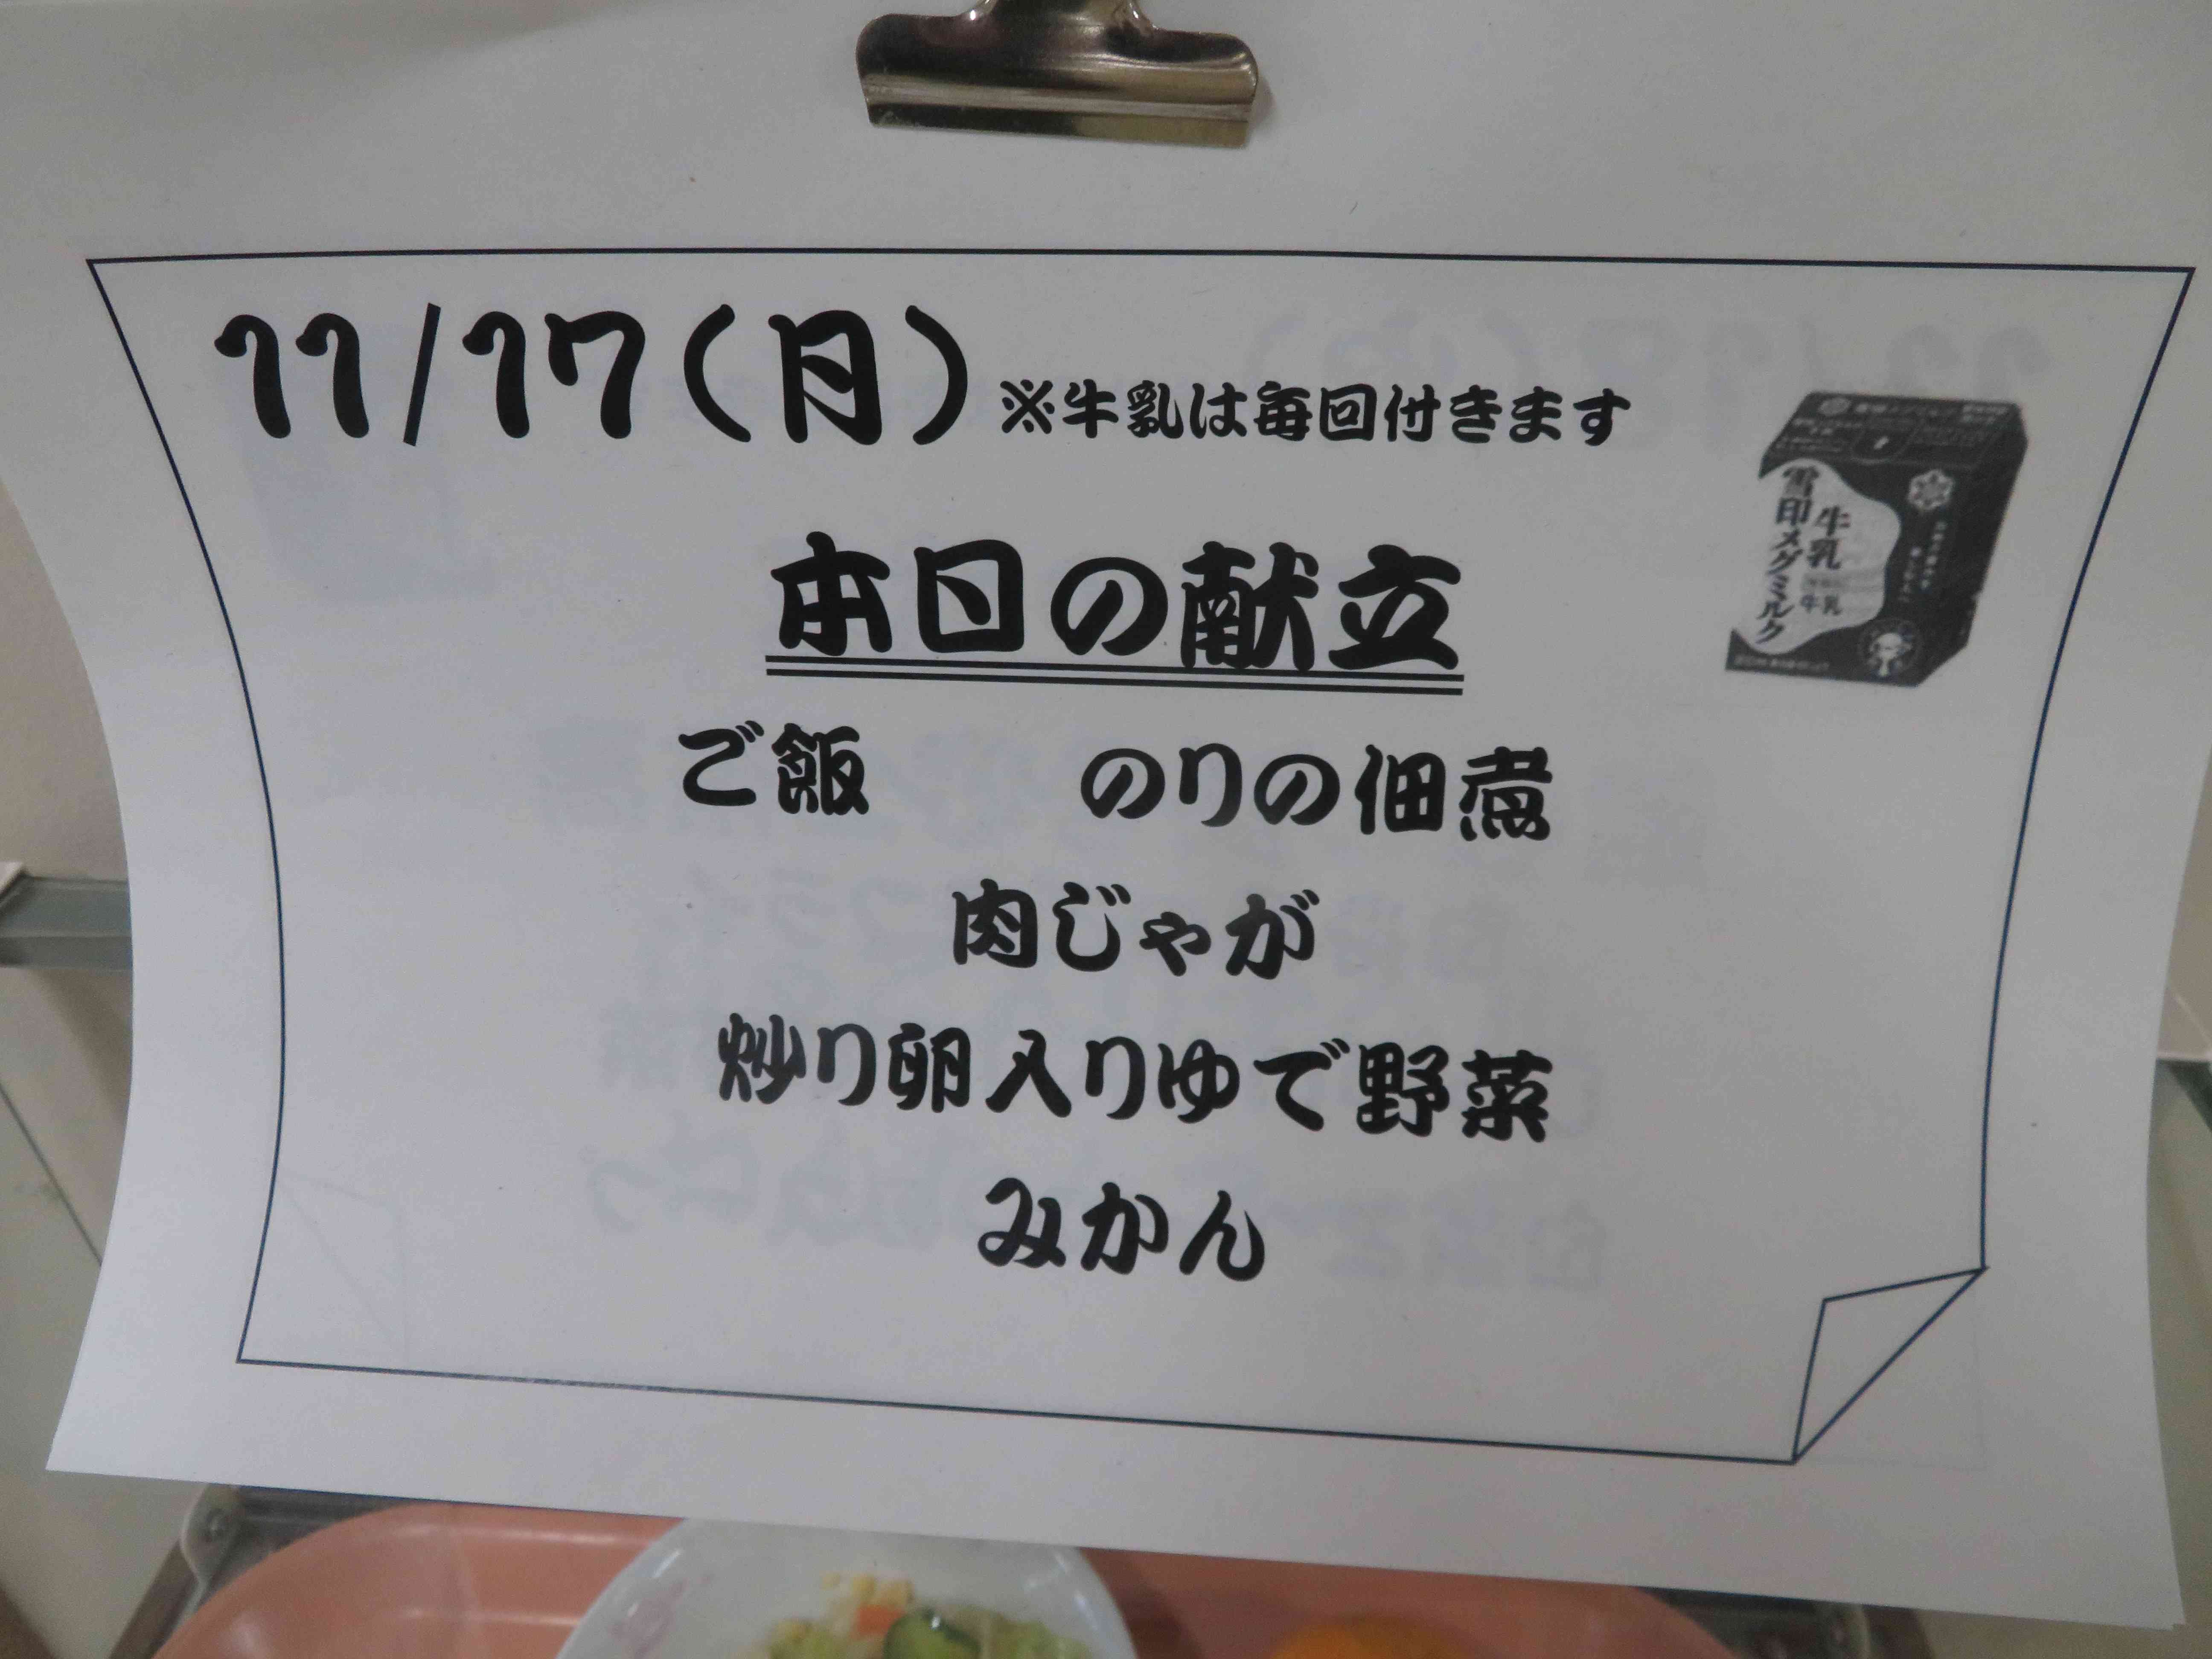 11/17(月)※牛乳は毎回付きます
本日の献立
ご飯　のりの佃煮
肉じゃが
炒り卵入りゆで野菜
みかん
牛乳
雪印メグミルク
牛乳